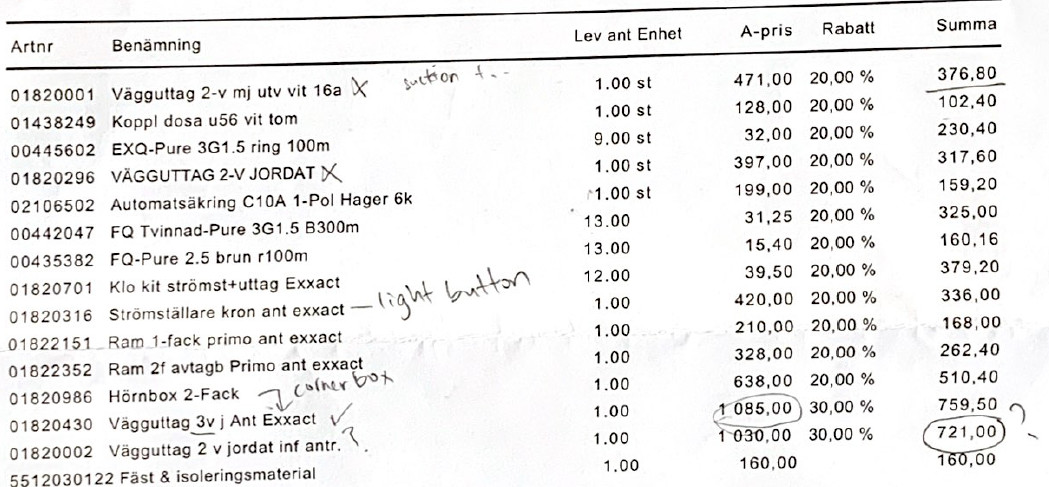 Artnr Benämning Lev ant Enhet A-pris Rabatt Summa
01820001 Vägguttag 2-v mj utv vit 16a X suction 1.00 st 471,00 20,00 % 376,80
01438249 Koppl dosa u56 vit tom 1.00 st 128,00 20,00 % 102,40
00445602 EXQ-Pure 3G1.5 ring 100m 9.00 st 32,00 20,00 % 230,40
01820296 VÄGGUTTAG 2-V JORDAT X 1.00 st 397,00 20,00 % 317,60
02106502 Automatsäkring C10A 1-Pol Hager 6k 1.00 st 199,00 20,00 % 159,20
00442047 FQ Tvinnad-Pure 3G1.5 B300m 13.00 31,25 20,00 % 325,00
00435382 FQ-Pure 2.5 brun r100m 13.00 15,40 20,00 % 160,16
01820701 Klo kit strömst+uttag Exxact 12.00 39,50 20,00 % 379,20
01820316 Strömställare kron ant exxact – light button 1.00 420,00 20,00 % 336,00
01822151 Ram 1-fack primo ant exxact 1.00 210,00 20,00 % 168,00
01822352 Ram 2f avtagb Primo ant exxact 1.00 328,00 20,00 % 262,40
01820986 Hörnbox 2-Fack corner box 1.00 638,00 20,00 % 510,40
01820430 Vägguttag 3v j Ant Exxact ✓ 1.00 1 085,00 30,00 % 759,50
01820002 Vägguttag 2 v jordat inf antr. ? 1.00 1 030,00 30,00 % 721,00 ?
5512030122 Fäst & isoleringsmaterial 1.00 160,00 160,00